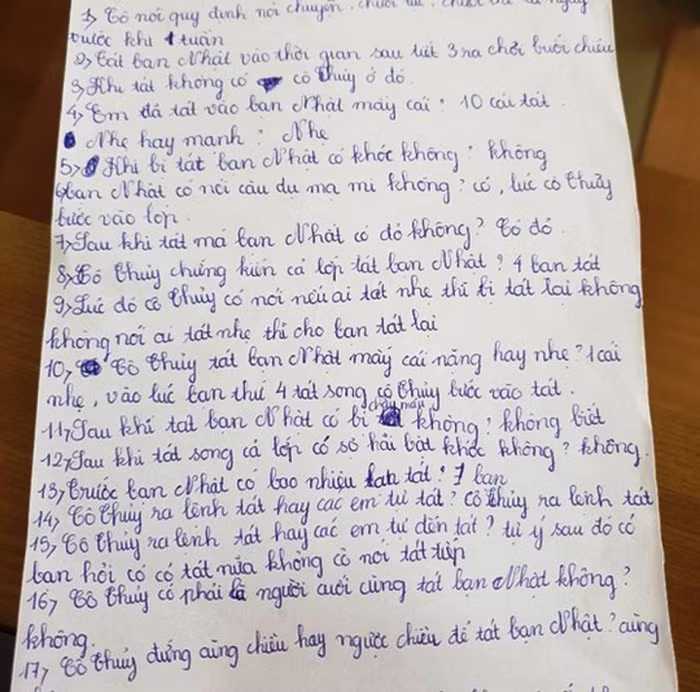 1, Cô nói quy định nói chuyện, chửi
trước khi 1 tuần
2, Cát bạn Nhật vào thời gian sau tiết 3 ra chơi buổi chiều
3, Khi tát không có cô Thủy ở đó.
4, Em đã tát vào bạn Nhật mấy cái? 10 cái tát.
Nhẹ hay mạnh? Nhẹ
5, Khi bị tát bạn Nhật có khóc không? không
6, bạn Nhật có nói câu du ma mi không? có, lúc cô Thủy
bước vào lớp.
7, Sau khi tát má bạn Nhật có đỏ không? Có đỏ
8, Cô Thủy chứng kiến cả lớp tát bạn Nhật? 4 bạn tát
9, Lúc đó cô Thủy có nói nếu ai tát nhẹ thì bị tát lại không
không nói ai tát nhẹ thì cho bạn tát lại
10, Cô Thủy tát bạn Nhật mấy cái nặng hay nhẹ? 1 cái
nhẹ, vào lúc bạn thứ 4 tát song cô Thủy bước vào tát.
11, Sau khi tát bạn Nhật có bị chảy máu không? không biết
12, Sau khi tát song cả lớp có sợ hãi bật khóc không? không.
13, Trước bạn Nhật có bao nhiêu bạn tát? 7 bạn
14, Cô Thủy ra lệnh tát hay các em tự tát? Cô Thủy ra lệnh tát
15, Cô Thủy ra lệnh tát hay các em tự đến tát? tự ý sau đó có
bạn hỏi có có tát nữa không cô nói tát tiếp
16, Cô Thủy có phải là người cuối cùng tát bạn Nhật không?
không.
17, Cô Thủy đứng cùng chiều hay ngược chiều để tát bạn Nhật? cùng